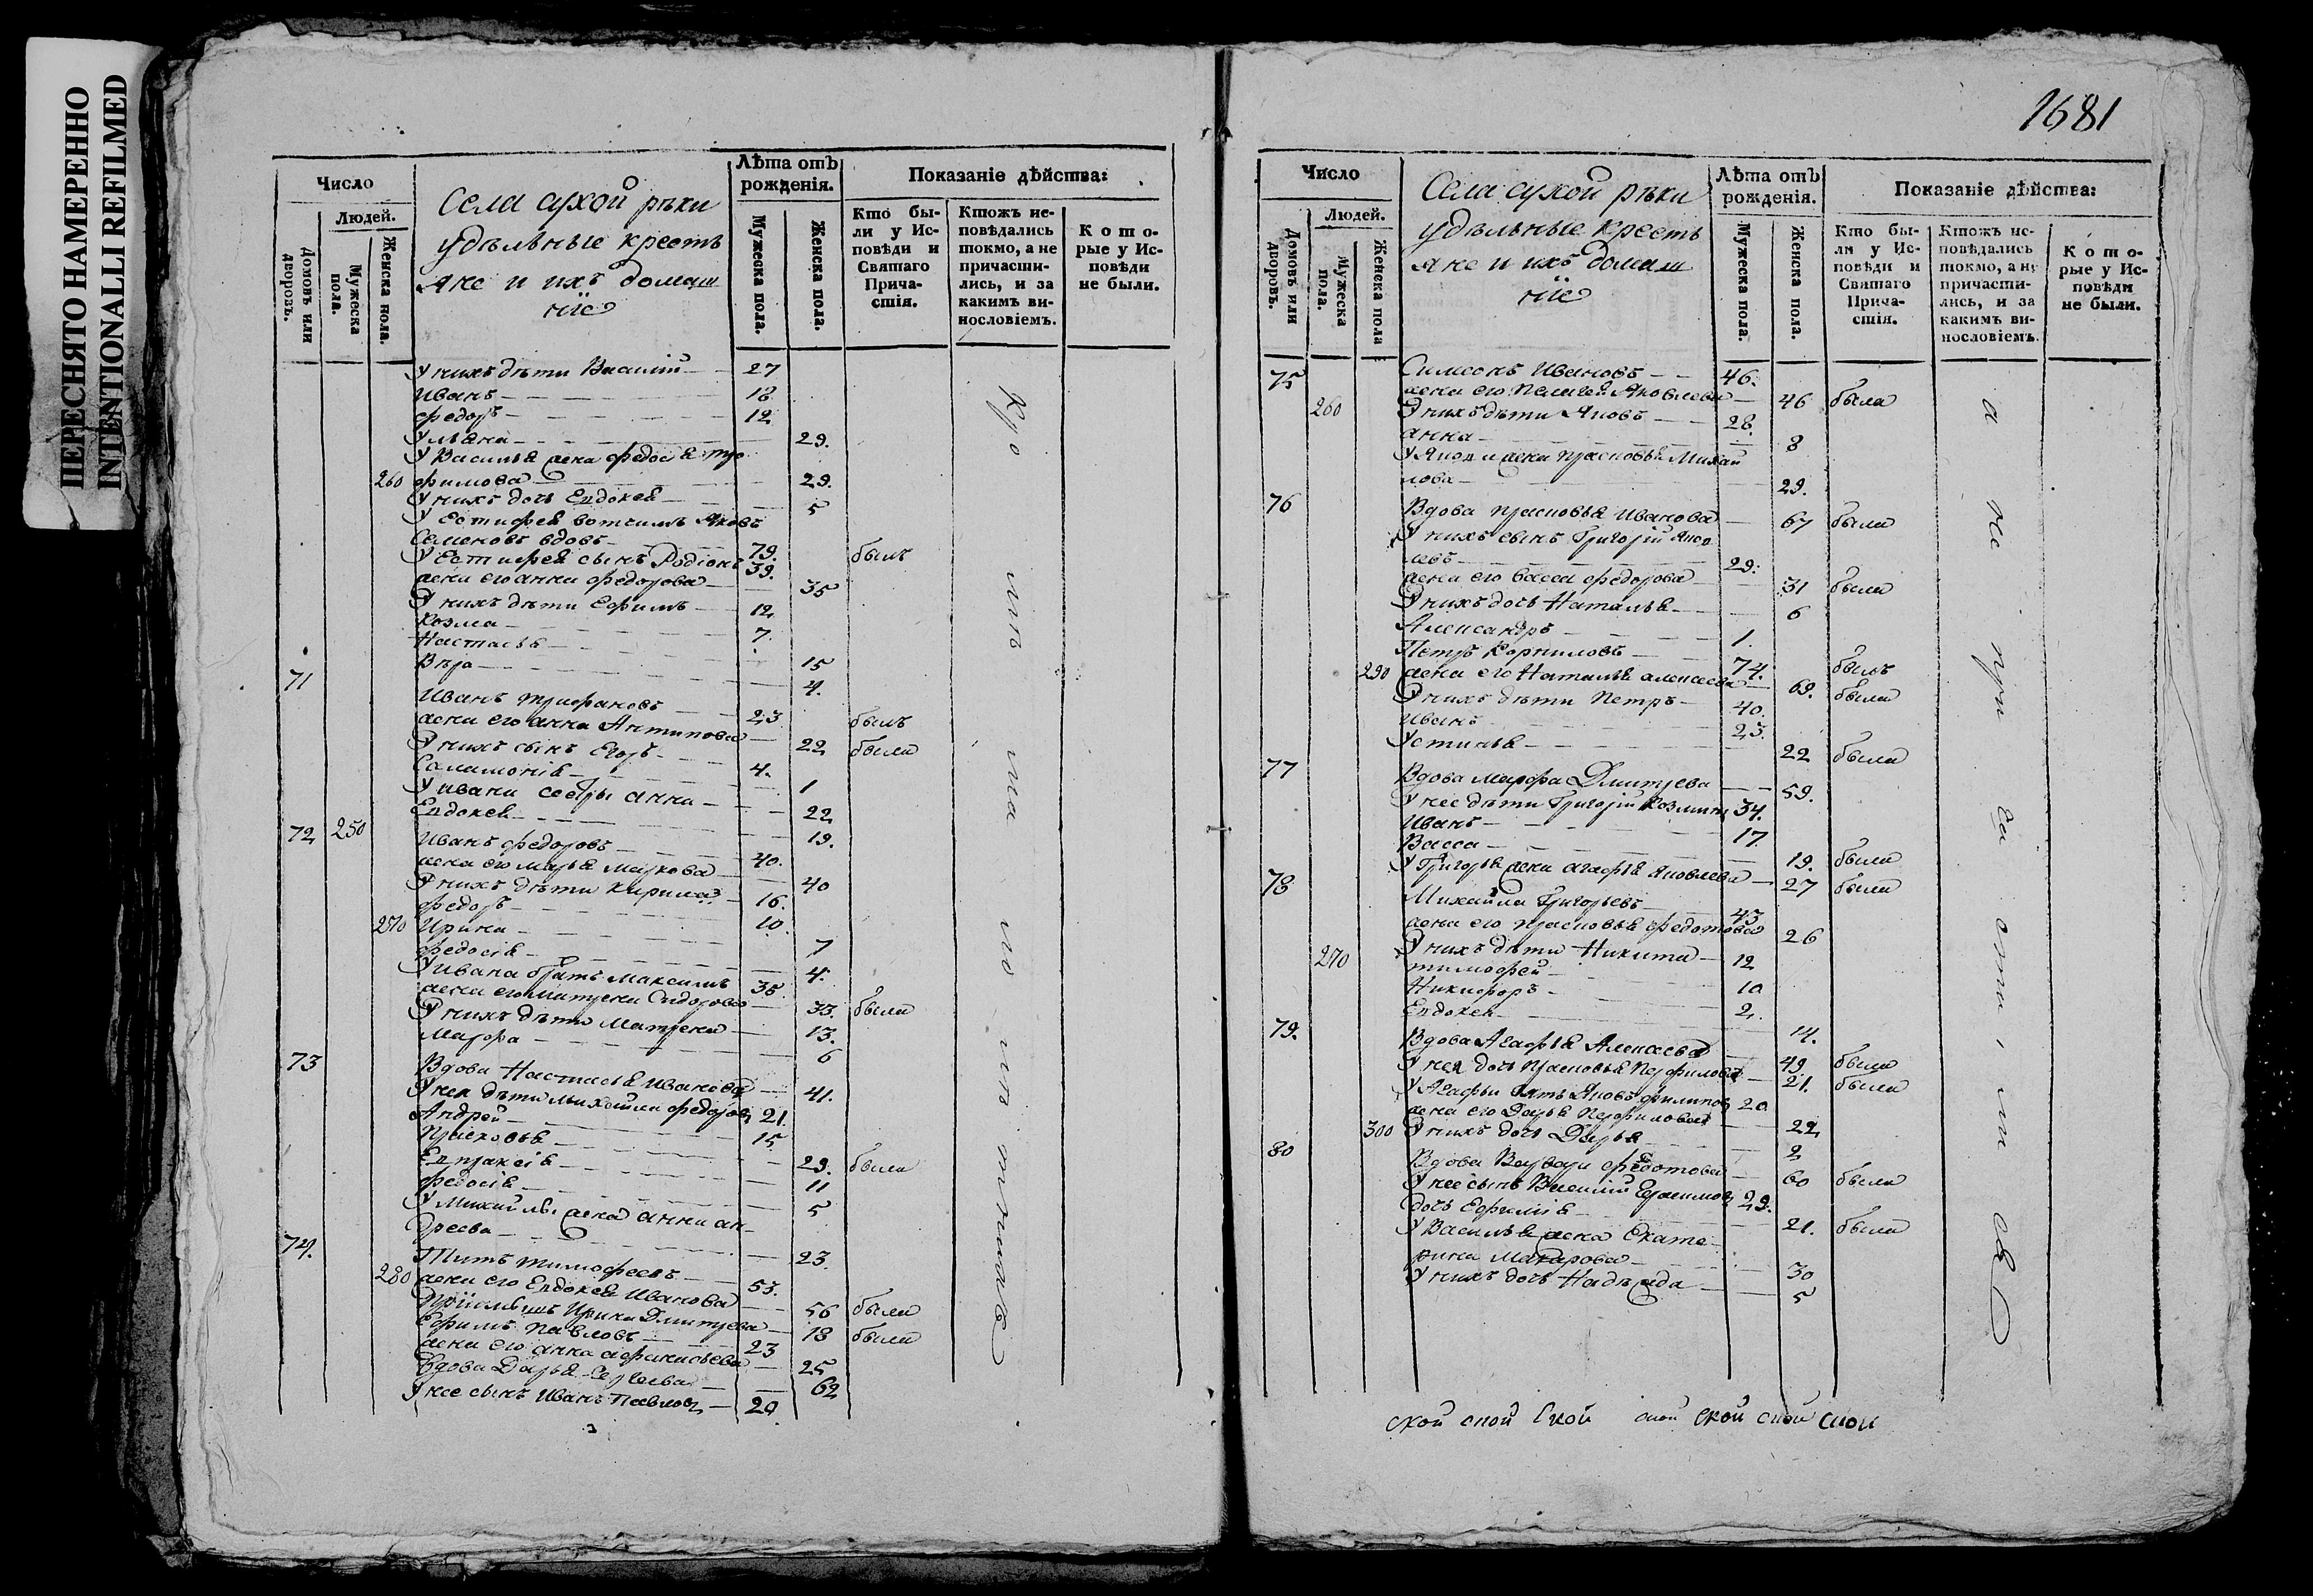 ПЕРЕСНЯТО НАМЕРЕННО
INTENTIONALLI REFILMED
Число
Людей.
Домовъ или дворовъ.
Мужеска пола.
Женска пола.
Села сухой рѣки
удѣльные кресть
яне и ихъ домаш
ніе
Лѣта отъ рожденія.
Мужеска пола.
Женска пола.
Показаніе дѣйства:
Кто бы-
ли у Ис-
повѣди и
Святаго
Прича-
стія.
Ктожъ ис-
повѣдались
токмо, а не
причасти-
лись, и за
какимъ ви-
нословіемъ.
Кото-
рые у Ис-
повѣди
не были.
У нихъ дѣти Василій 27
Иванъ 18
Федоръ 12
Ульяна 29.
У Василья жена Федосья тро
260 фимова 29.
У нихъ дочь Евдокея 5
У Естифея вотчимъ Яковъ
Семеновъ вдовъ 79. былъ
У Естифея сынъ Родіонъ 39.
жена его анна Федорова 35
У нихъ дѣти Ефимъ 12
Козма 7.
Настасья 15
Вѣра 4.
71 Иванъ Трифановъ 23 былъ
жена его анна Антипова 22 была
У нихъ сынъ Егоръ 4.
Саламонія 1
У ивана сестры анна 22
Евдокея 19.
72 250 Иванъ Федоровъ 40.
жена его марья маркова 40
У нихъ дѣти Кирила 16.
Федоръ 10.
270 Ирина 7
Федосія 4.
У ивана братъ Максимъ 35.
жена его матрена Сидорова 33. была
У нихъ дѣти Матрена 13.
Марфа 6
73 Вдова Настасья Иванова 41.
У нея дѣти михайла федоровъ 21.
Андрей 15.
Прасковья 29. была
Евпраксія 11
Федосія 5
У Михайлы жена анна ан
дреева 23.
74. Титъ Тимофеевъ 53.
280 жена его Евдокея Иванова 56 была
Пріемышъ Ирина Дмитрева 18 была
Ефимъ Павловъ 23
жена его анна афанасьева 25
Вдова Дарья Сергеева 62
У нее сынъ Иванъ Павловъ 20.
1681
Число
Людей.
Домовъ или дворовъ.
Мужеска пола.
Женска пола
Села сухой рѣки
удѣльные кресть
яне и ихъ домаш
ніе
Лѣта отъ рожденія.
Мужеска пола.
Женска пола.
Показаніе дѣйства:
Кто бы-
ли у Ис-
повѣди и
Святаго
Прича-
стія.
Ктожъ ис-
повѣдались
токмо, а не
причасти-
лись, и за
какимъ ви-
нословіемъ.
Кото-
рые у Ис-
повѣди
не были.
75 Симеонъ Ивановъ 46.
жена его Пелагея Яковлева 46 была
260 У нихъ дѣти Яковъ 28.
анна 8
У Якова жена прасковья Михай
лова 29.
76 Вдова прасковья Иванова 67 была
У нихъ сынъ Григорій Яков
левъ 29.
жена его васса федорова 31 была
У нихъ дочь Наталья 6
Александръ 1.
Петръ Корниловъ 74. былъ
290 жена его Наталья алексеева 69. была
У нихъ дѣти Петръ 40.
Иванъ 23.
Устинья 22 была
77 Вдова марфа Дмитрева 59.
У нее дѣти Григорій Козминъ 34.
Иванъ 17.
Васса 19. была
У Григорья жена агафья Яковлева 27 была
78 Михайла Григорьевъ 43
жена его прасковья федотова 26
У нихъ дѣти Никита 12
270 тимофей 10
Никифоръ 2.
Евдокея 14.
79. Вдова Агафья Алексеева 49 была
У нея дочь прасковья Перфилова 21. была
У Агафьи зять Яковъ филиповъ 20
жена его Дарья Перфилова 22
300 У нихъ дочь Дарья 2
80 Вдова Варвара федотова 60 была
У нее сынъ Василій Герасимовъ 29.
дочь Ефимія 21. была
У Василья жена Екате
рина Макарова 30
У нихъ дочь Надѣжда 5
ской ской ской ской ской ской ской